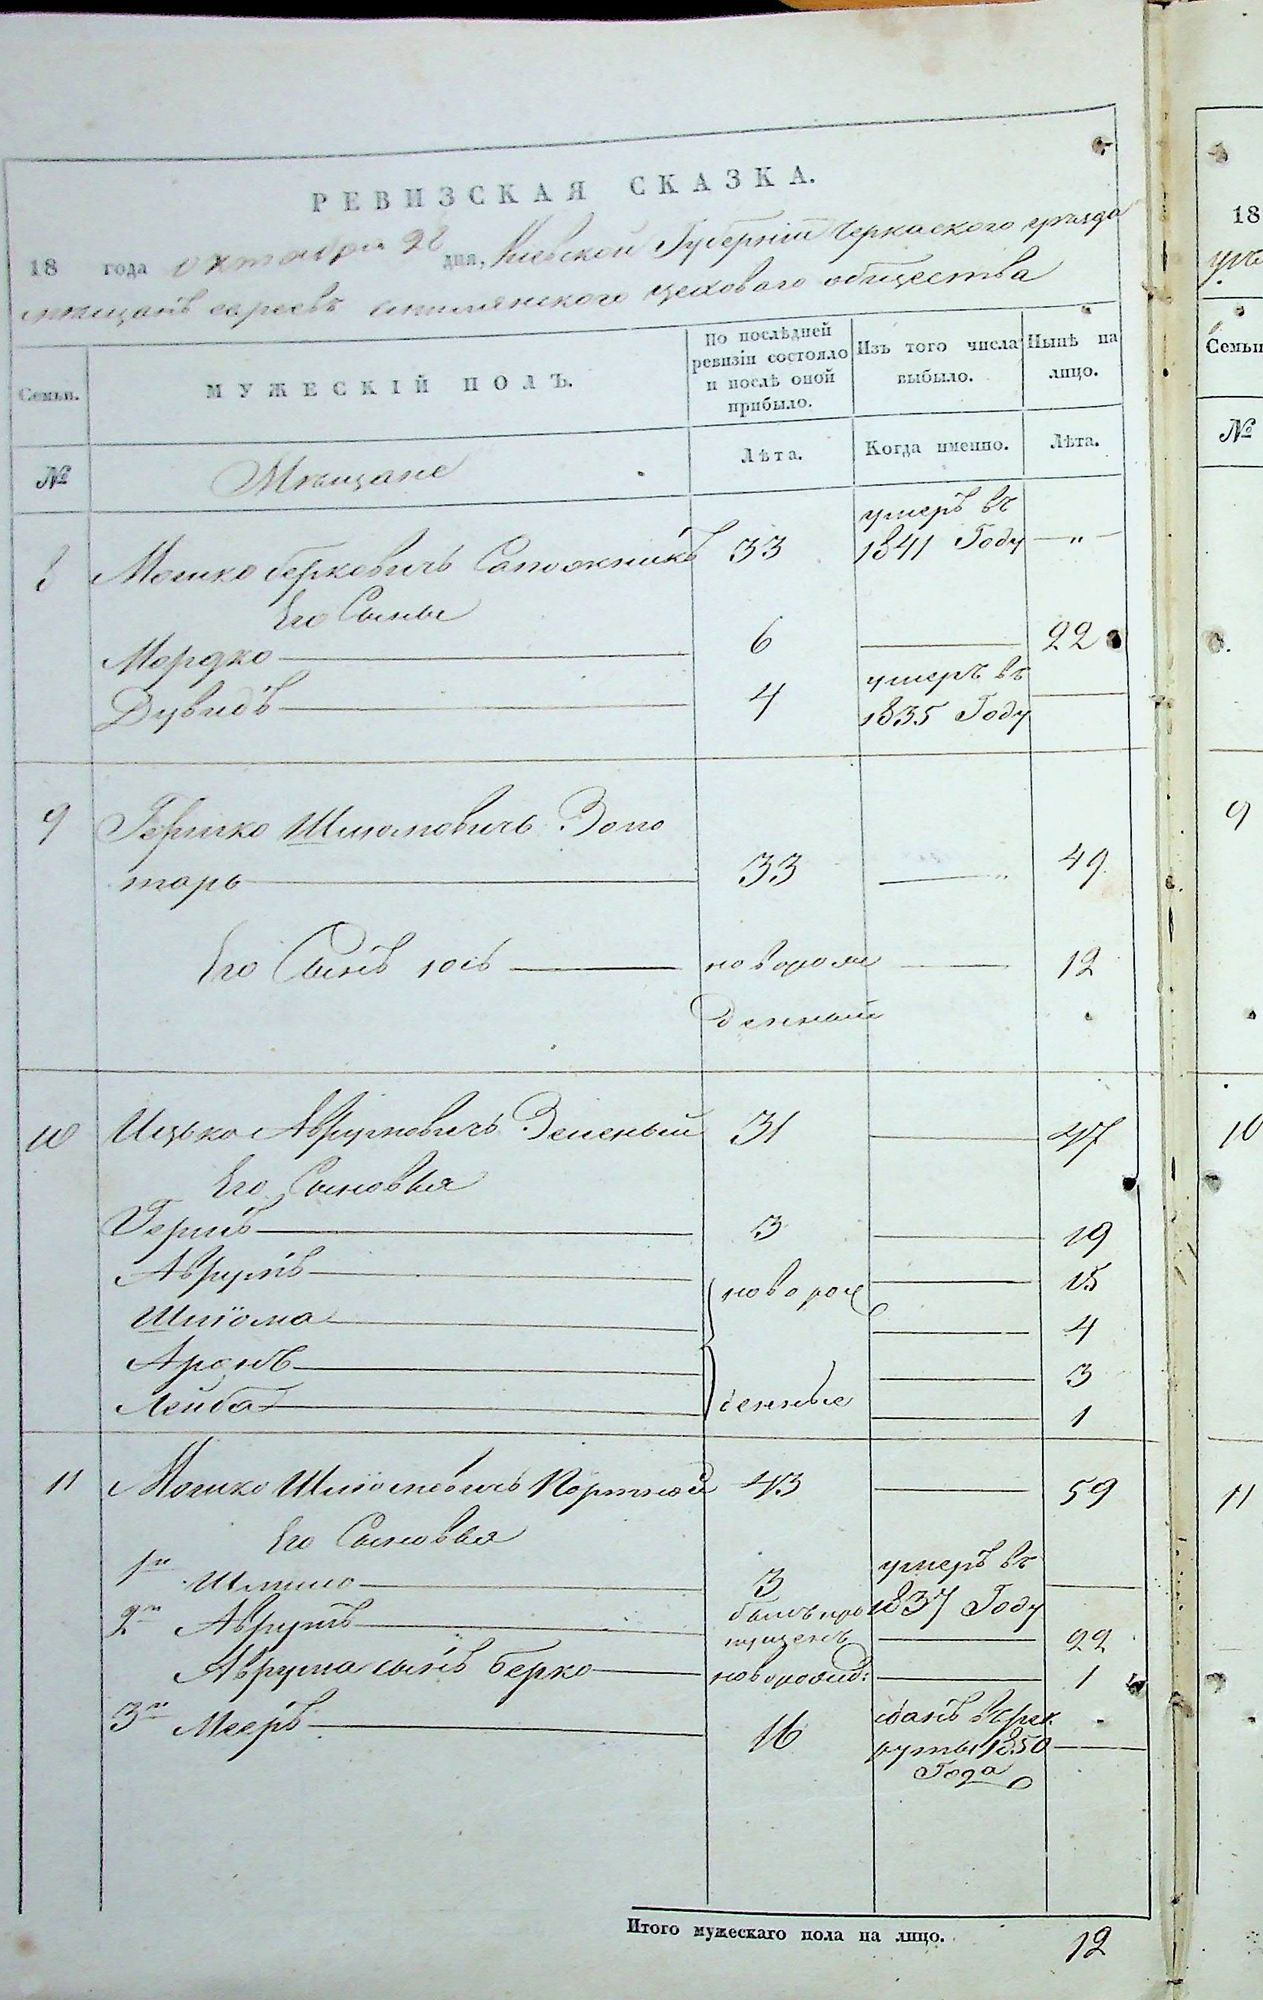 РЕВИЗСКАЯ СКАЗКА.
18 года октября 28 дня, Киевской Губерніи Черкаского уѣзда
мѣщанъ евреевъ цеховаго общества
Семьи. МУЖЕСКІЙ ПОЛЪ. По послѣдней ревизіи состояло и послѣ оной прибыло. Изъ того числа выбыло. Нынѣ на лицо.
№ Мѣщане Лѣта. Когда именно. Лѣта.
8 Мошко Берковичъ Сапожникъ 33 умеръ въ 1841 Году — „ —
Его Сыны
Мордко 6 — 22
Дувидъ 4 умеръ въ 1835 Году —
9 Гершко Шліомовичъ Золо
тарь 33 — „ 49
Его Сынъ Іось новорож — 12
денный
10 Ицько Аврумовичъ Зеленый 31 — 47
Его Сыновья
Гершъ 3 — 19
Аврумъ новорож — 15
Шліома — 4
Аронъ — 3
Лейба денные — 1
11 Мошко Шліомовичъ Портной 43 — 59
Его Сыновья
1й Шліомо 3 умеръ въ 1837 Году —
2й Аврумъ былъ про пущенъ — 22
Аврума сынъ Берко новорожд: — 1
3й Мееръ 16 сданъ въ рек
руты 1850 —
Года
Итого мужескаго пола на лицо. 12
18
Семьи
№
9
10
11